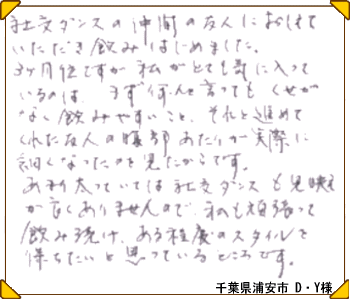 社交ダンスの仲間の友人におしえて
いただき飲みはじめました。
3ヶ月位ですが私がとても気に入って
いるのは、まず何と言ってもくせが
なく飲みやすいこと、それと進めて
くれた友人の腹部あたりが実際に
細くなったのを見たからです。
あまり太っていては社交ダンスも見映え
が良くありませんので、私も頑張って
飲み続け、ある程度のスタイルを
保ちたいと思っているところです。
千葉県浦安市 D・Y様